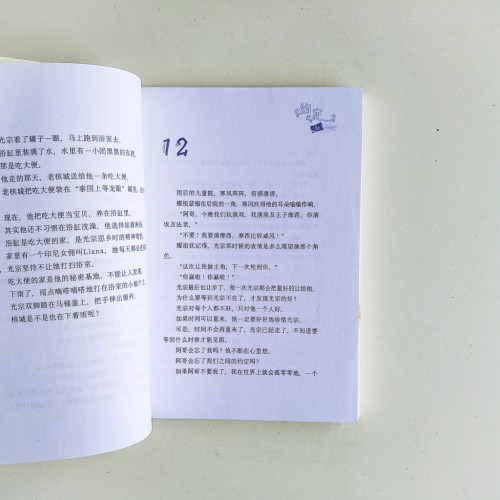 光宗看了罐子一眼，马上跑到浴室去。
浴缸里装满了水，水里有一小团黑黑的东西，
那是吃大便。
他走的那天，老槟城送给他一条吃大便。
老槟城把吃大便装在“泰国上等龙眼”罐里，
现在，他把吃大便当宝贝，养在浴缸里。
其实他还不习惯在浴缸洗澡，他选择
浴缸是吃大便的家，是光宗那乡时的精神
家里有一个印尼女佣叫Liana，她每天都会
光宗坚持不让她打扫浴室。
吃大便的家是他的秘密基地，不能让人发现。
下雨了，雨点嘀嗒嘀嗒地打在浴室的小窗户上。
光宗双脚踏在马桶盖上，把手伸出窗外。
槟城是不是也在下着雨呢？
约定
12
雨后的儿童院，寒风阵阵，倍感凄凉。
耀祖瑟缩在后院的一角，寒风吹得他的耳朵嗡嗡作响。
“阿哥，今晚我们玩演戏，我演埃及王子摩西，你演
埃及法老。”
“不要！我要演摩西，摩西比较威风！”
耀祖犹记得，光宗那时候的表情是多么渴望演那个角
色。
“这次让我做主角，下一次轮到你。”
“你赢啦！你赢啦！”
光宗最后也让步了，每一次光宗都会把最好的让给他。
为什么要等到光宗不在了，才发现光宗的好？
光宗对每个人都不好，只对他一个人好。
如果时间可以重来，他一定要好好地珍惜光宗。
可是，时间不会再重来了，光宗已经走了，不知道要
等到什么时候才能见面。
阿哥会忘了我吗？他不断在心里想。
阿哥会忘了我们之间的约定吗？
如果阿哥不要我了，我在世界上就会孤零零地，一个